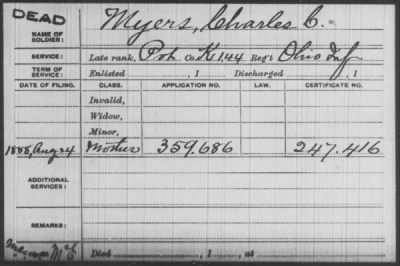 DEAD
NAME OF SOLDIER: Myers, Charles C.
SERVICE: Late rank, Pvt Co. K 144 Reg't Ohio Inf
TERM OF SERVICE: Enlisted , 1 Discharged , 1
DATE OF FILING. CLASS. APPLICATION NO. LAW. CERTIFICATE NO.
Invalid,
Widow,
Minor,
1888, Aug 24 Mother 359.686 247.416
ADDITIONAL SERVICES:
REMARKS:
Died , 1 , at